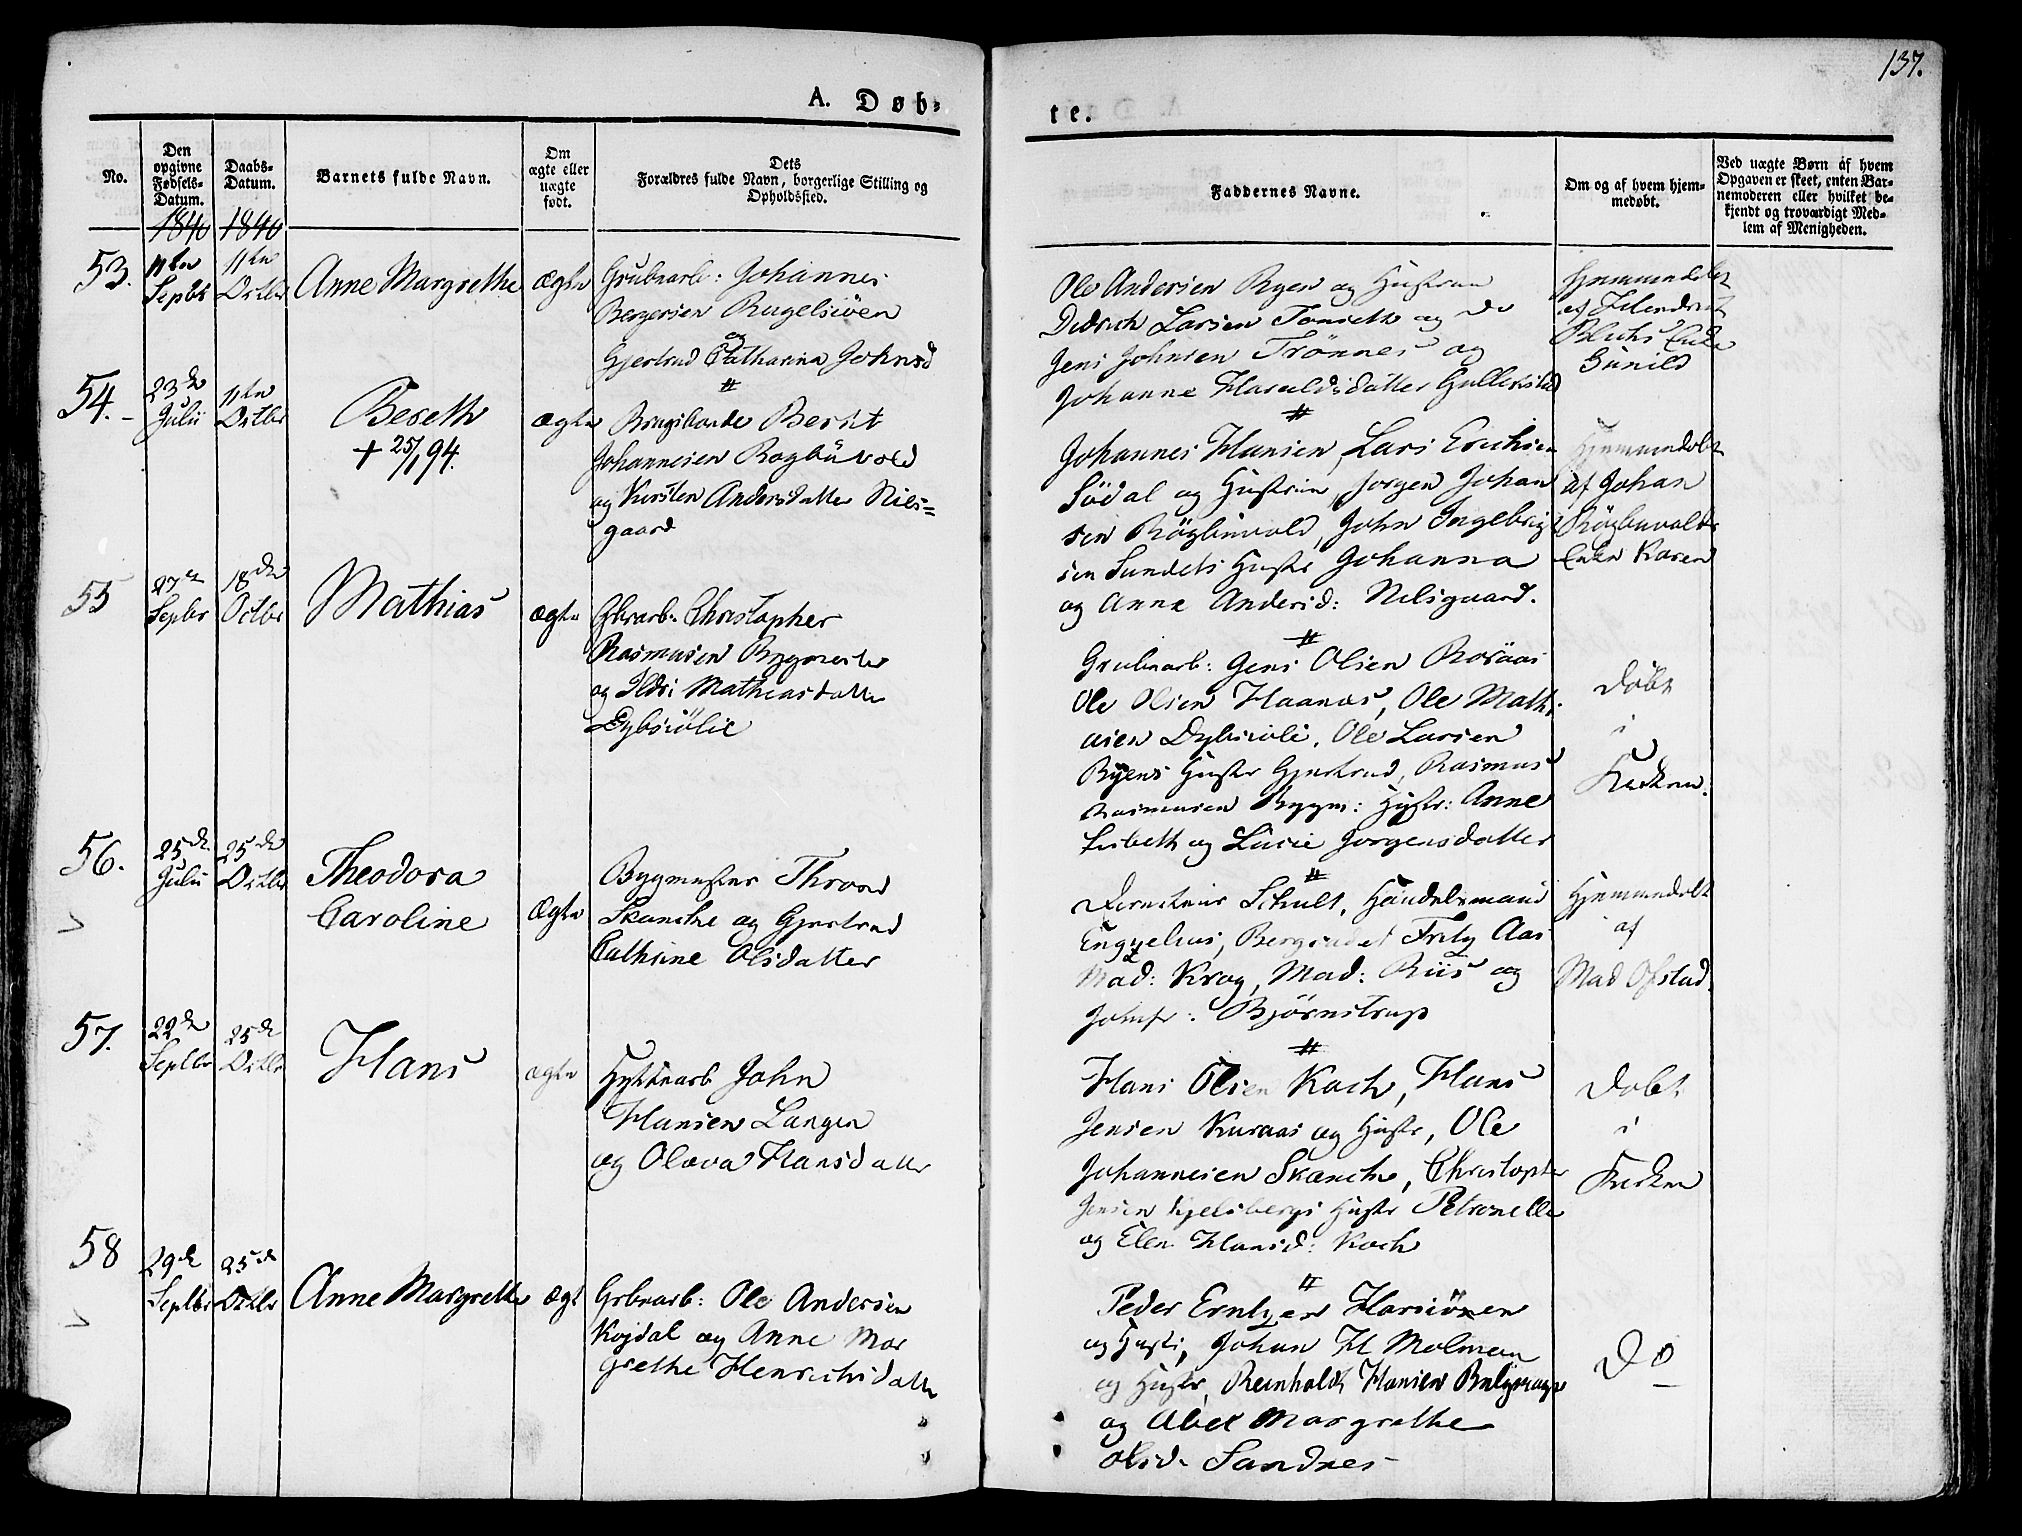 137.
A. Døb-
te.
No.
Den
opgivne
Fødsels-
Datum.
Daabs-
Datum.
Barnets fulde Navn.
Om
ægte eller
uægte
født.
Dets
Forældres fulde Navn, borgerlige Stilling og
Opholdssted.
Faddernes Navne.
Om og af hvem hjem-
medøbt.
Ved uægte Børn af hvem
Opgaven er skeet, enten Bar-
nemoderen eller hvilket be-
kjendt og troværdigt Med-
lem af Menigheden.
1840 1840
53.
11te
Septbr
11te
Octbr
Anne Margrethe
ægte
Grubearb: Johannes
Bergersen Rugelsiøen
og
Gjertrud Catharina Johnsd
Ole Andersen Ryen og Hustrue
Didrich Larsen Tonseth og do
Jens Johnsen Trönnes og
Johanne Haraldsdatter
Hjemmedøbt
af Hendrich
Enke
Gunild
54.
23de
Julii
11te
Octbr
Beseth
+ 25/1 94.
ægte
Berht
Johannesen
og Kirsten Andersdatter Nils=
gaard
Johannes Hansen, Lars Erichsen
Södal og Hustrue, Jorgen Johan
sen, John Ingebrigt
sen Sundets Hustr Johanna
og Anne Andersd: Nilsgaard.
Hjemmedøbt
af Johan
Enke Karen
55
27de
Sepbr
18de
Octbr
Mathias
ægte
Christopher
Rasmusen Bygmester
og Ildri Mathiasdatter
Dybsiölie
Grubearb: Jens Olsen
Ole Olsen Haanæs, Ole Mathi
asen Dybsiölie, Ole Larsen
Ryens Hustr Gjertrud, Rasmus
Rasmusen Bygm: Hustr: Anne
Lisbeth og Lucie Jorgensdatter
Døbt
i
Kirken.
56.
25de
Julii
25de
Octbr
Theodora
Caroline
Ægte
Bygmester Thrond
Skancke og Gjertrud
Cathrine Olsdatter
Directeur Schult, Handelsmand
Engzelius, Fritz Aas
Mad: Krog, Mad: Riis og
Jomfr: Bjørnstrup
Hjemmedøbt
af
Mad Ofstad.
57.
22de
Septbr
25de
Octbr
Hans
ægte
Hyttearb John
Hansen Langen
og Olava Hansdatter
Hans Olsen Koch, Hans
Jensen Kuraas og Hustr, Ole
Johannesen Skancke, Christopher
Jensen Hustr Petronelle
og Elen Hansd: Koch
Døbt
i
Kirken
58
29de
Septbr
25de
Octbr
Anne Margrethe
ægt
Grbearb: Ole Andersen
Kojdal og Anne Mar
grethe Henrichsdatter
Peder Erntzen Harsiöen
og Hustr, Johan H Molman
og Hustr, Reinholdt Hansen
og Abel Margrethe
Olsd. Sandnes
Do